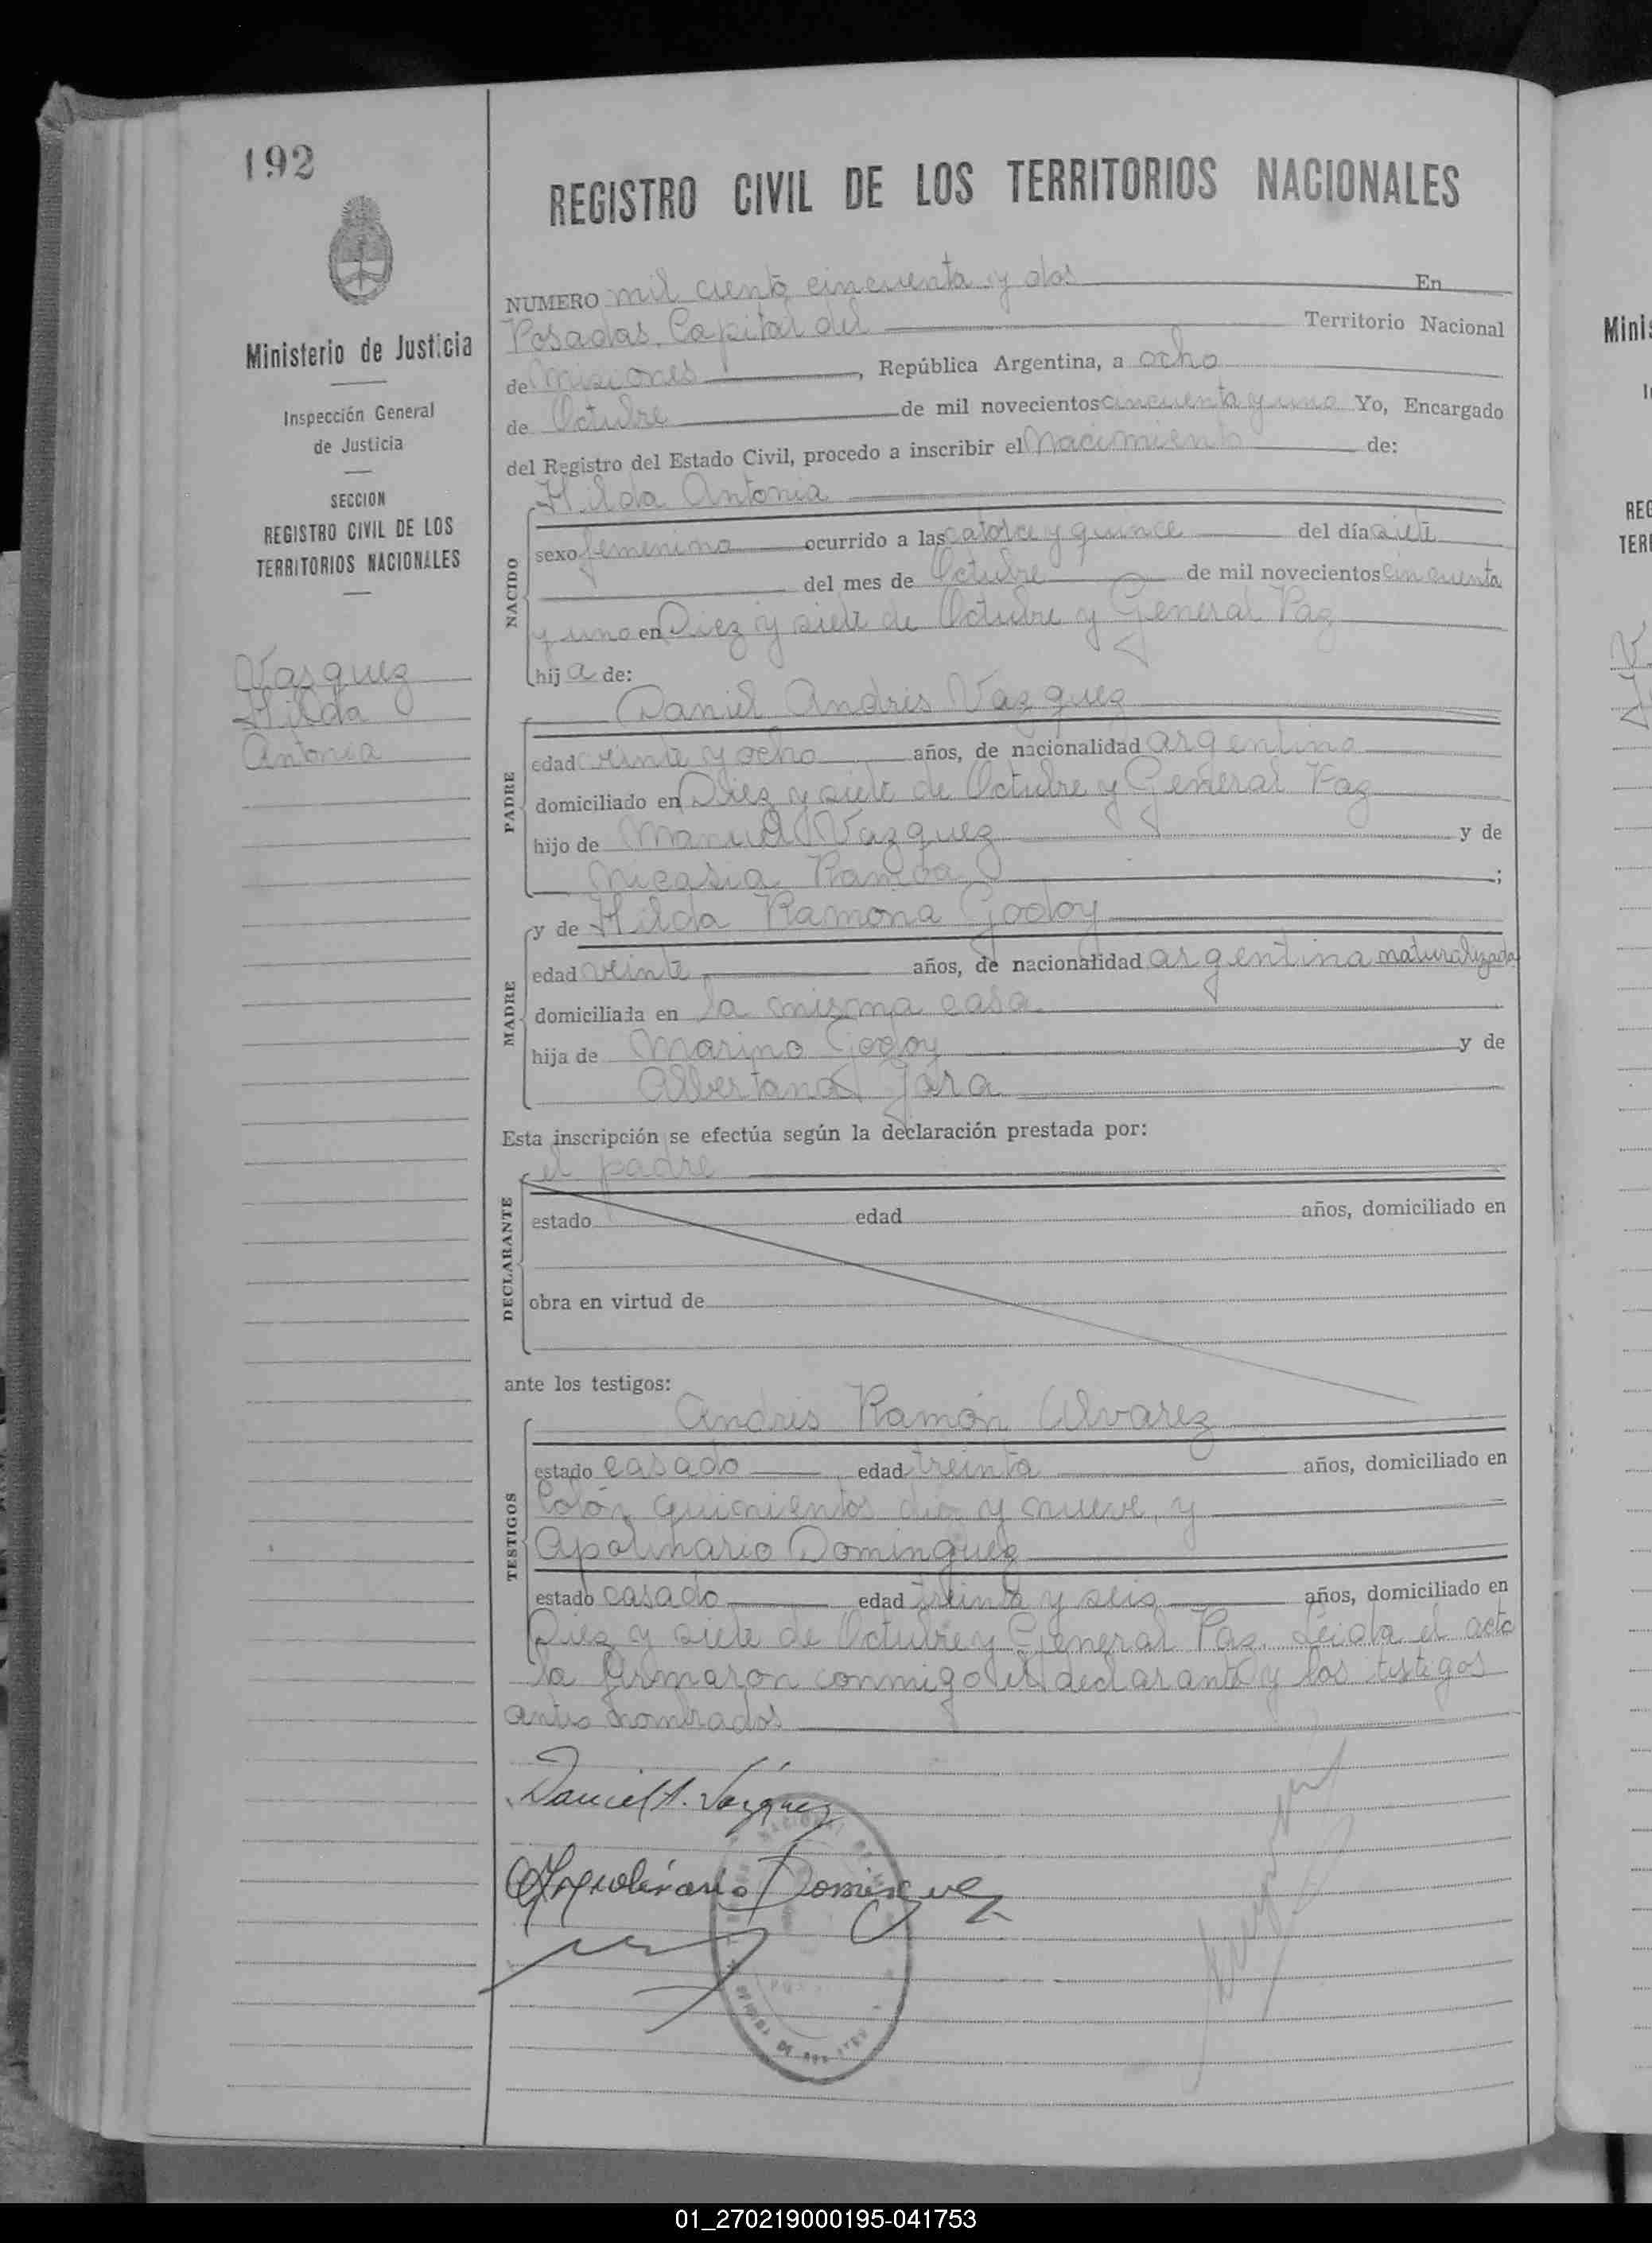 192
REGISTRO CIVIL DE LOS TERRITORIOS NACIONALES
Ministerio de Justicia
Inspección General
de Justicia
SECCION
REGISTRO CIVIL DE LOS
TERRITORIOS NACIONALES
Vasquez
Hilda
Antonia
NUMERO mil ciento cincuenta y dos En
Posadas, Capital del Territorio Nacional
de Misiones, República Argentina, a ocho
de Octubre de mil novecientos cincuenta y uno Yo, Encargado
del Registro del Estado Civil, procedo a inscribir el Nacimiento de:
NACIDO
Hilda Antonia
sexo femenino ocurrido a las catorce y quince del día siete
del mes de Octubre de mil novecientos cincuenta
y uno en Diez y siete de Octubre y General Paz
hija de:
PADRE
Daniel Andrés Vazquez
edad veinte y ocho años, de nacionalidad argentino
domiciliado en Diez y siete de Octubre y General Paz
hijo de Manuel Vazquez y de
Nicasia Ramoa;
MADRE
y de Hilda Ramona Godoy
edad veinte años, de nacionalidad argentina naturalizada
domiciliada en la misma casa
hija de Marino Godoy y de
Albertana Jara
Esta inscripción se efectúa según la declaración prestada por:
DECLARANTE
el padre
estado edad años, domiciliado en
obra en virtud de
ante los testigos:
TESTIGOS
Andrés Ramón Alvarez
estado casado edad treinta años, domiciliado en
Colón quinientos diez y nueve, y
Apolinario Dominguez
estado casado edad treinta y seis años, domiciliado en
Diez y siete de Octubre y General Paz. Leída el acta
la firmaron conmigo el declarante y los testigos
antes nombrados
Daniel A. Vázquez
Apolinario Dominguez
Minis
REG
TERR
01_270219000195-041753